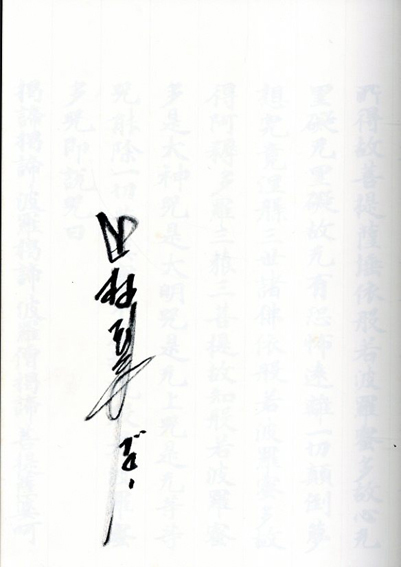 所得故菩提薩埵依般若波羅蜜多故心无
罣礙无罣礙故无有恐怖遠離一切顛倒夢
想究竟涅槃三世諸佛依般若波羅蜜多故
得阿耨多羅三藐三菩提故知般若波羅蜜
多是大神咒是大明咒是无上咒是无等等
咒能除一切
多咒即說咒曰
揭諦揭諦波羅揭諦波羅僧揭諦菩提薩婆訶
田村